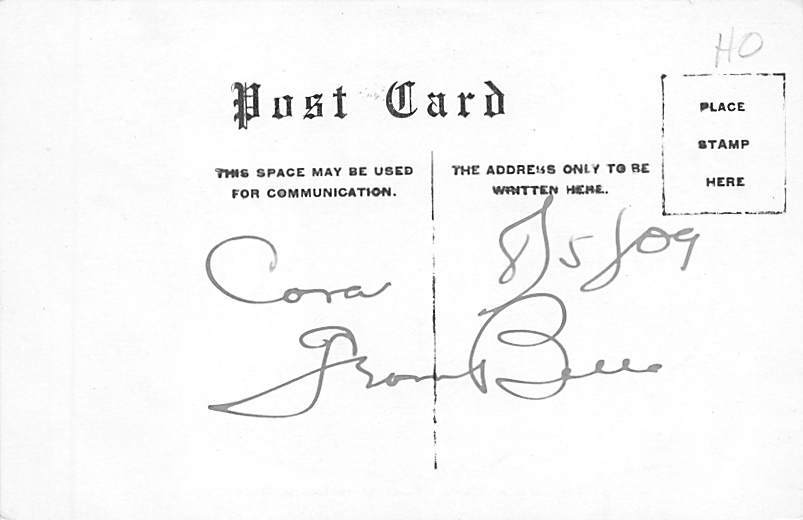 HO
Post Card
PLACE
STAMP
HERE
THIS SPACE MAY BE USED
FOR COMMUNICATION.
THE ADDRESS ONLY TO BE
WRITTEN HERE.
Cora 8/5/09
From Belle